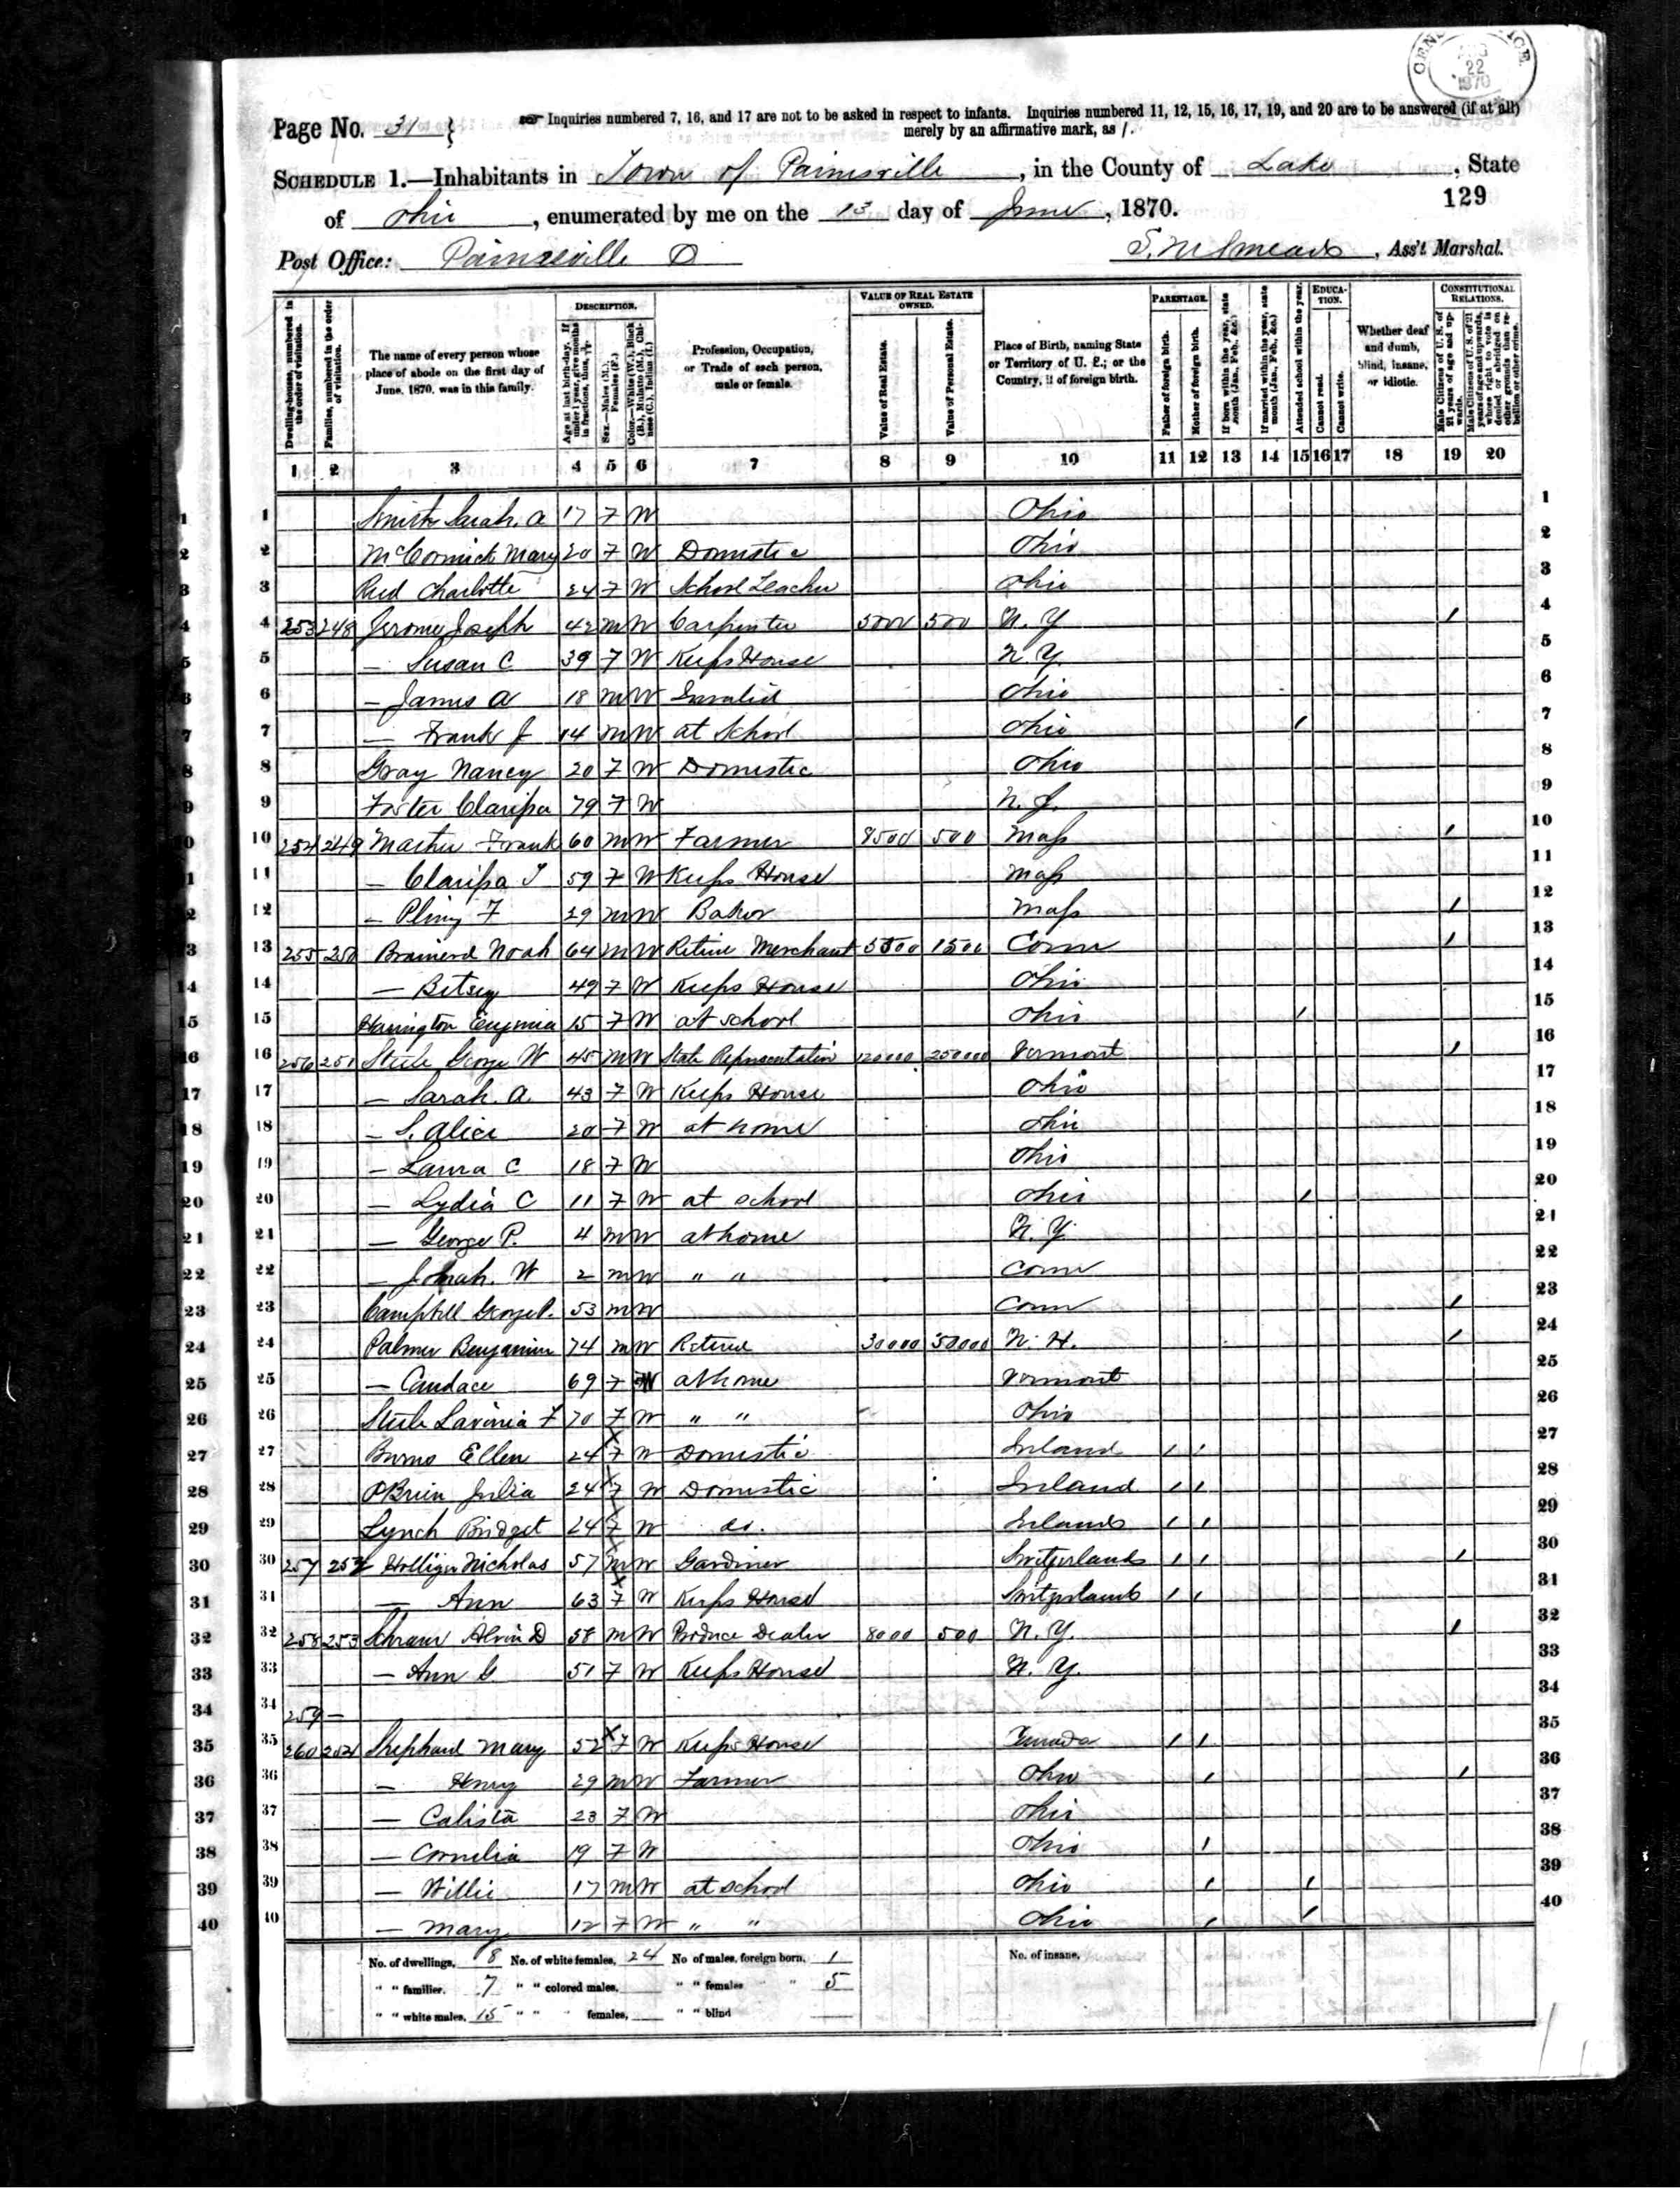 CENSUS OFFICE. AUG 22 1870
Page No. 31
Inquiries numbered 7, 16, and 17 are not to be asked in respect to infants. Inquiries numbered 11, 12, 15, 16, 17, 19, and 20 are to be answered (if at all)
merely by an affirmative mark, as /.
SCHEDULE 1.—Inhabitants in Town of Painesville, in the County of Lake, State
of Ohio, enumerated by me on the 13 day of June, 1870.
129
Post Office: Painesville O
Ass't Marshal.
DESCRIPTION.
VALUE OF REAL ESTATE OWNED.
PARENTAGE.
EDUCATION.
CONSTITUTIONAL RELATIONS.
Dwelling-houses, numbered in the order of visitation.
Families, numbered in the order of visitation.
The name of every person whose place of abode on the first day of June, 1870, was in this family.
Age at last birth-day. If under 1 year, give months in fractions, thus,
Sex.—Males (M.), Females (F.)
Color.—White (W.), Black (B.), Mulatto (M.), Chinese (C.), Indian (I.)
Profession, Occupation, or Trade of each person, male or female.
Value of Real Estate.
Value of Personal Estate.
Place of Birth, naming State or Territory of U. S.; or the Country, if of foreign birth.
Father of foreign birth.
Mother of foreign birth.
If born within the year, state month (Jan., Feb., &c.)
If married within the year, state month (Jan., Feb., &c.)
Attended school within the year.
Cannot read.
Cannot write.
Whether deaf and dumb, blind, insane, or idiotic.
Male Citizens of U. S. of 21 years of age and upwards.
Male Citizens of U. S. of 21 years of age and upwards, whose right to vote is denied or abridged on other grounds than rebellion or other crime.
1 2 3 4 5 6 7 8 9 10 11 12 13 14 15 16 17 18 19 20
1 Smith Sarah. A 17 F W Ohio 1
2 McCormick Mary 20 F W Domestic Ohio 2
3 Reed Charlotte 24 F W School Teacher Ohio 3
4 253 248 Jerome Joseph 42 M W Carpenter 5000 500 N. Y / 4
5 — Susan C 39 F W Keeps House N. Y. 5
6 — James A 18 M W Invalid Ohio 6
7 — Frank J 14 M W at School Ohio / 7
8 Gray Nancy 20 F W Domestic Ohio 8
9 Foster Clarissa 79 F W N. J. 9
10 254 249 Frank 60 M W Farmer 8500 500 Mass / 10
11 — Clarissa 59 F W Keeps House Mass 11
12 — Pliny F 29 M W Baker Mass / 12
13 255 250 Brainerd Noah 64 M W Retire Merchant 5500 1500 Conn / 13
14 — Betsey 49 F W Keeps House Ohio 14
15 Harrington 15 F W at school Ohio / 15
16 256 251 Steele George W 45 M W State Representative 120000 250000 Vermont / 16
17 — Sarah. A. 43 F W Keeps House Ohio 17
18 — S. Alice 20 F W at home Ohio 18
19 — Laura C 18 F W Ohio 19
20 — Lydia C 11 F W at school Ohio / 20
21 — George P. 4 M W at home N. Y. 21
22 — W 2 M W " " Conn 22
23 Campbell George P. 53 M W Conn / 23
24 Palmer Benjamin 74 M W Retired 30000 50000 N. H. / 24
25 — Candace 69 F W at home Vermont 25
26 Steele Lavinia F 70 F W " " Ohio 26
27 Burns Ellen 24 F W Domestic Ireland / / 27
28 OBrien Julia 24 F W Domestic Ireland / / 28
29 Lynch Bridget 24 F W do. Ireland / / 29
30 257 252 Holliger Nicholas 57 M W Gardiner Switzerland / / / 30
31 — Ann 63 F W Keeps House Switzerland / / 31
32 258 253 Alvin D 58 M W Produce Dealer 8000 500 N. Y. / 32
33 — Ann G. 51 F W Keeps House N. Y. 33
34 259 — 34
35 260 254 Shephard Mary 52 F W Keeps House Canada / / 35
36 — Henry 29 M W Farmer Ohio / / 36
37 — Calista 23 F W Ohio 37
38 — Cornelia 19 F W Ohio / 38
39 — Willie 17 M W at school Ohio / / 39
40 — Mary 12 F W " " Ohio / / 40
No. of dwellings, 8 No. of white females, 24 No of males, foreign born, 1 No. of insane,
" " families. 7 " " colored males, " " females " 5
" " white males, 15 " " " females, " " blind